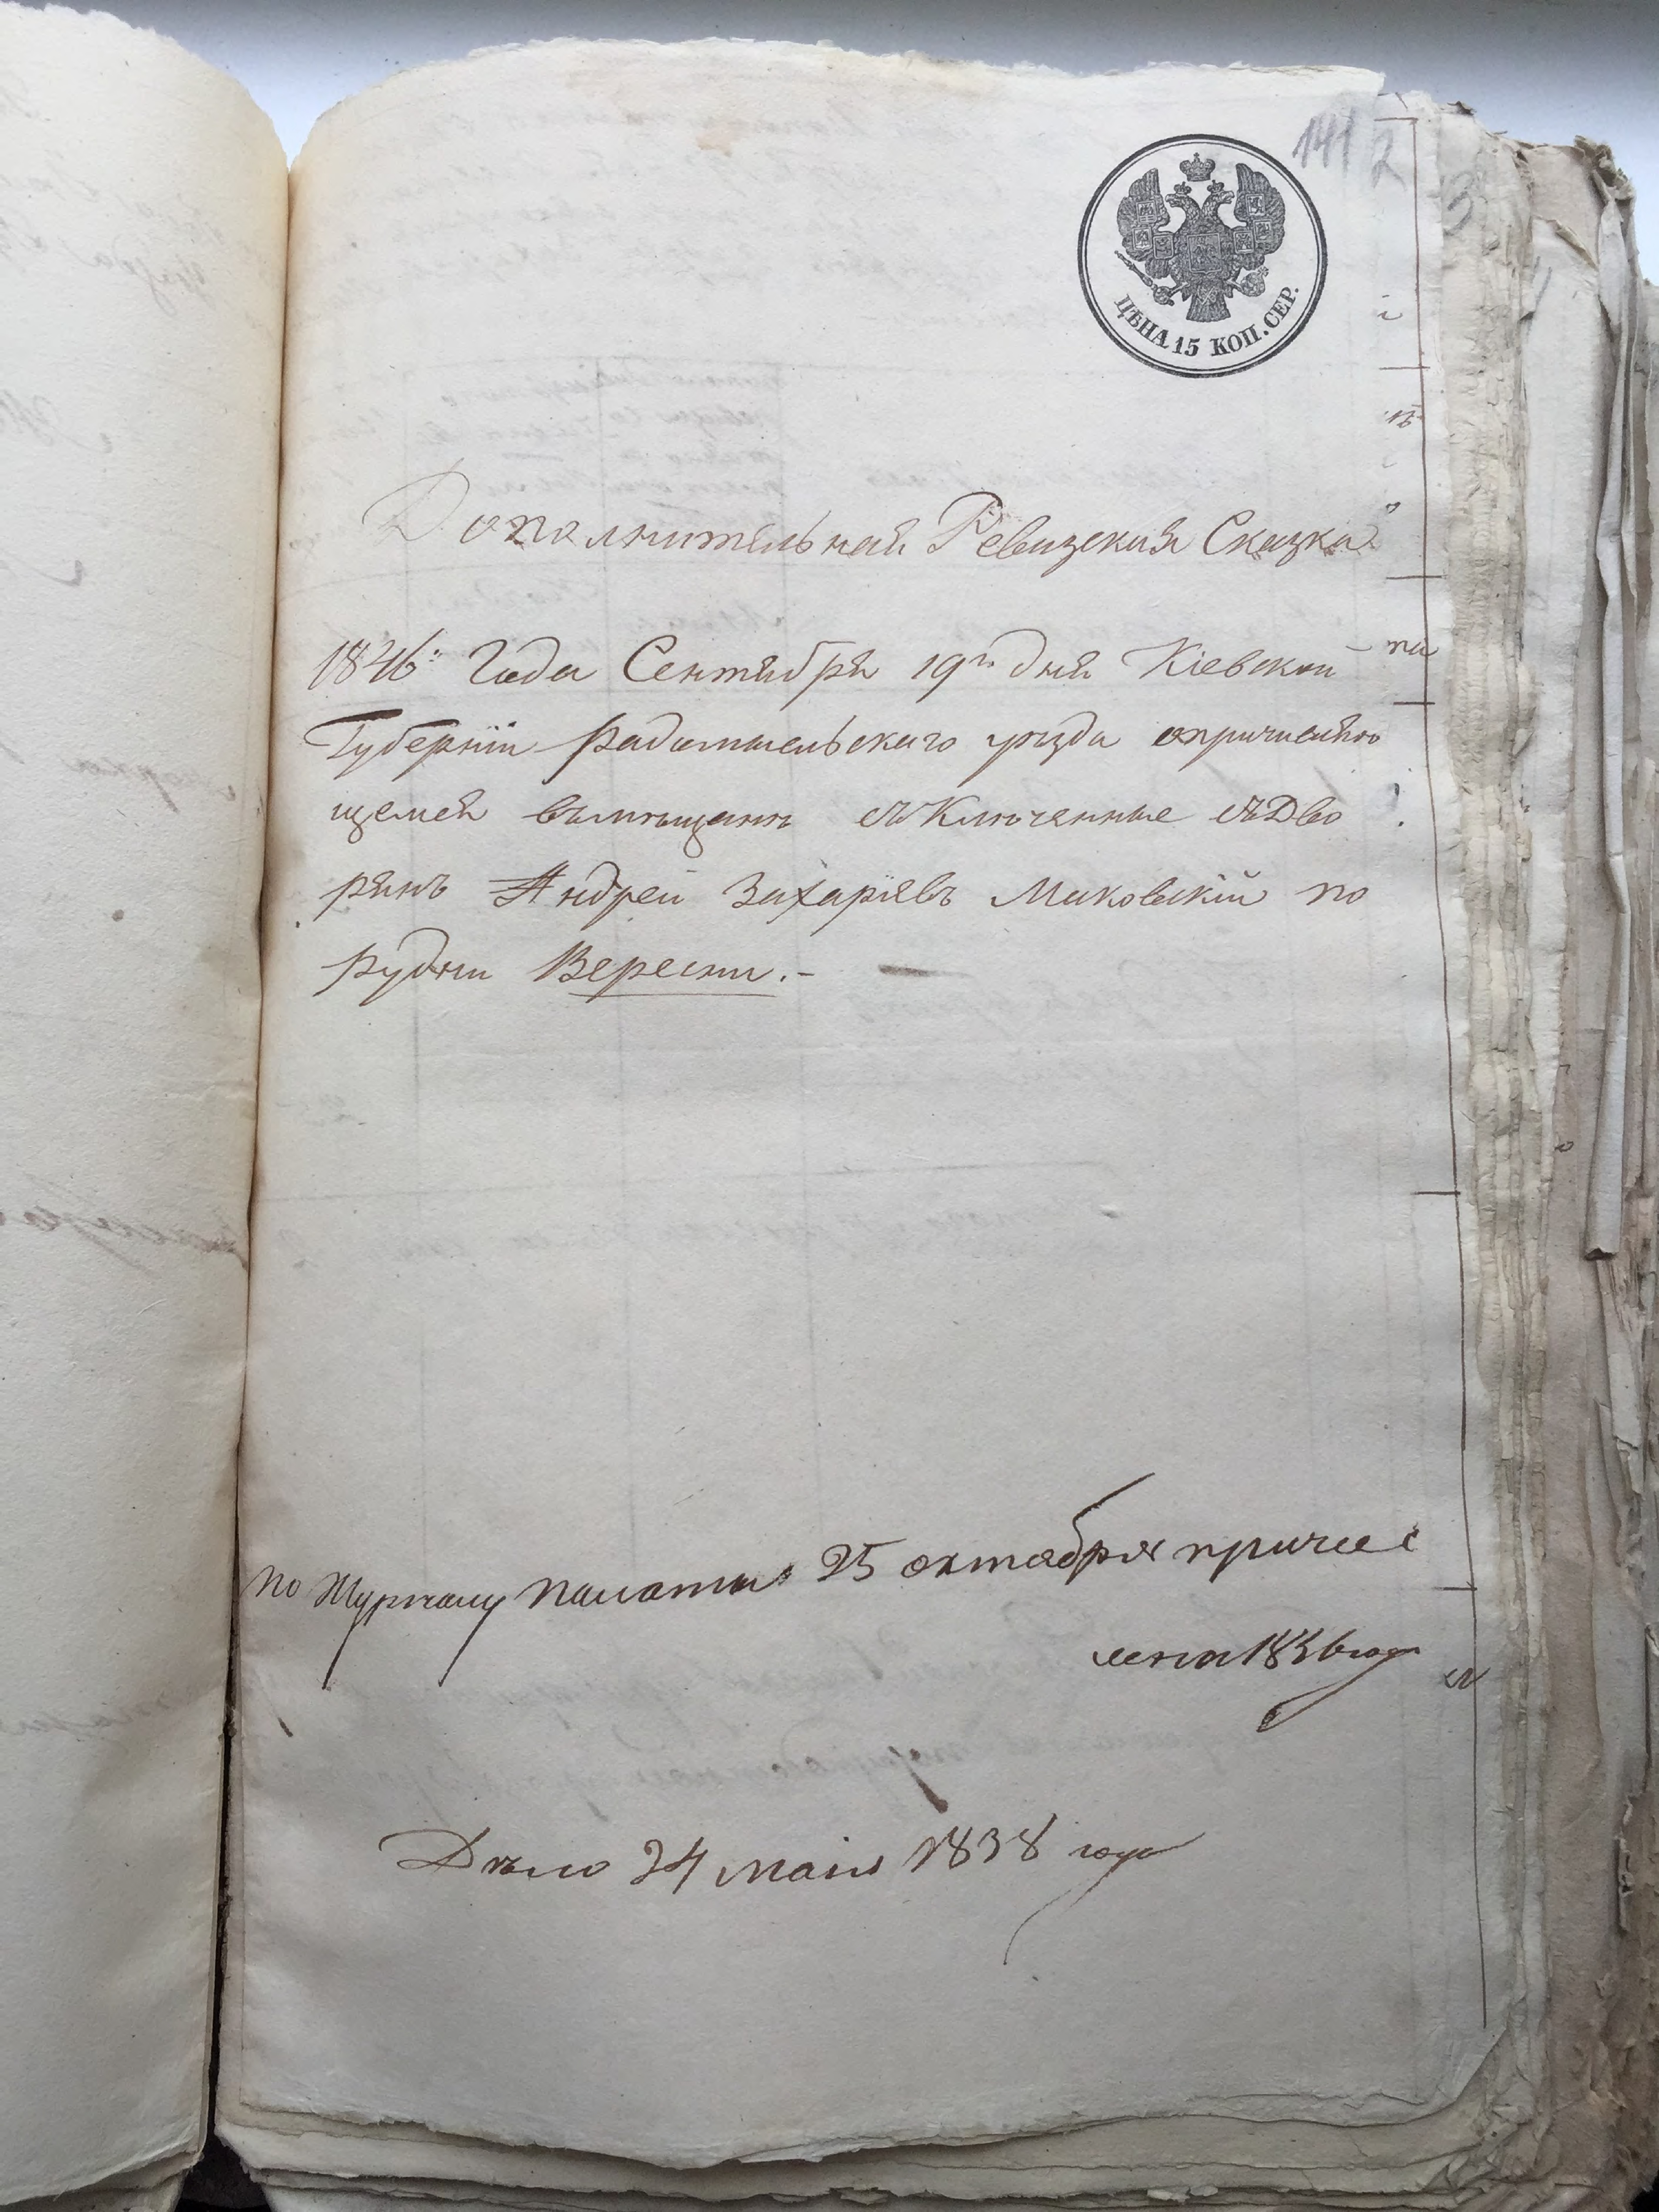 141 2
ЦѢНА 15 КОП. СЕР.
Дополнительная Ревизская Сказка
1846: Года Сентября 19го дня Кіевской
Губерніи Радомысльскаго уезда опричисляю
щемся въмѣщане изКлюченные изДво
рянъ Андрей Захаріевъ Маковскій по
рудни Вересни.-
по Журналу палаты 25 октября причис
лена 1846 года
Дѣло 24 маія 1838 года